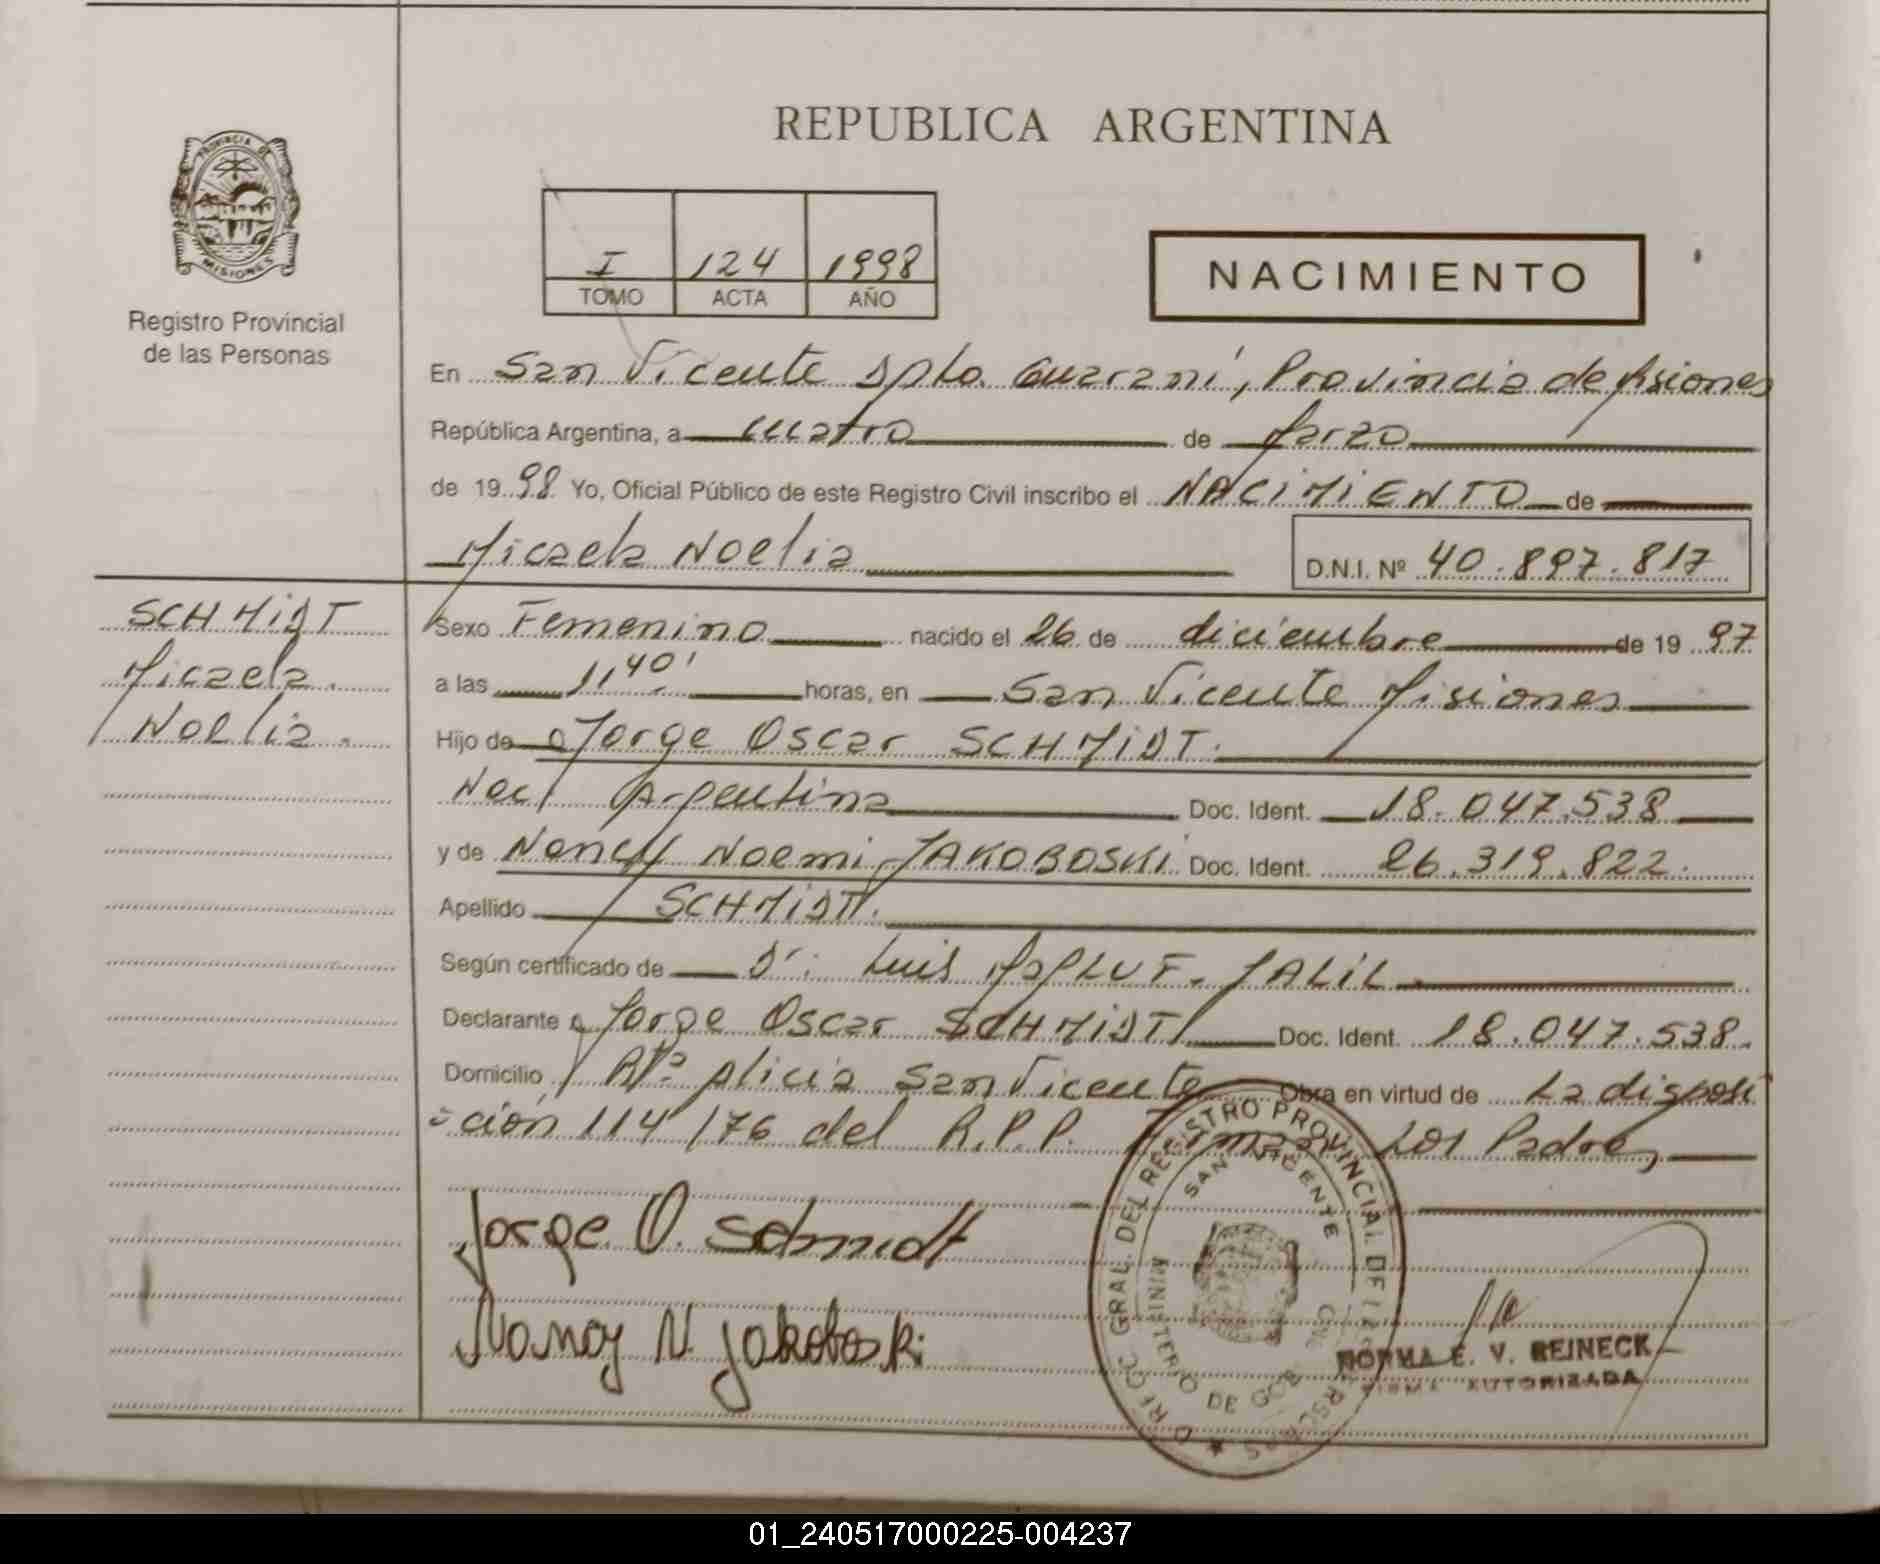 REPUBLICA ARGENTINA
PROVINCIA DE
MISIONES
Registro Provincial
de las Personas
I 124 1998
TOMO ACTA AÑO
NACIMIENTO
En San Vicente Dpto. Guaraní, Provincia de Misiones
República Argentina, a cuatro de Marzo
de 1998 Yo, Oficial Público de este Registro Civil inscribo el NACIMIENTO de
Micaela Noelia D.N.I. Nº 40.897.817
SCHMIDT
Micaela
Noelia.
Sexo Femenino nacido el 26 de diciembre de 1997
a las 1,40' horas, en San Vicente Misiones
Hijo de Jorge Oscar SCHMIDT.
Nac/ Argentina Doc. Ident. 18.047.538
y de Nancy Noemi JAKOBOSKI Doc. Ident. 26.319.822.
Apellido SCHMIDT.
Según certificado de Dr: Luis JALIL
Declarante Jorge Oscar SCHMIDT Doc. Ident. 18.047.538.
Domicilio Alicia San Vicente Obra en virtud de La disposi
ción 114/76 del R.P.P. Firman Los Padres
Jorge O. Schmidt
Nancy N. Jakoboski
GRAL. DEL REGISTRO PROVINCIAL DE LAS PERSONAS
SAN VICENTE
MINISTERIO DE GOB
NORMA E. V. REINECK
FIRMA AUTORIZADA
01_240517000225-004237